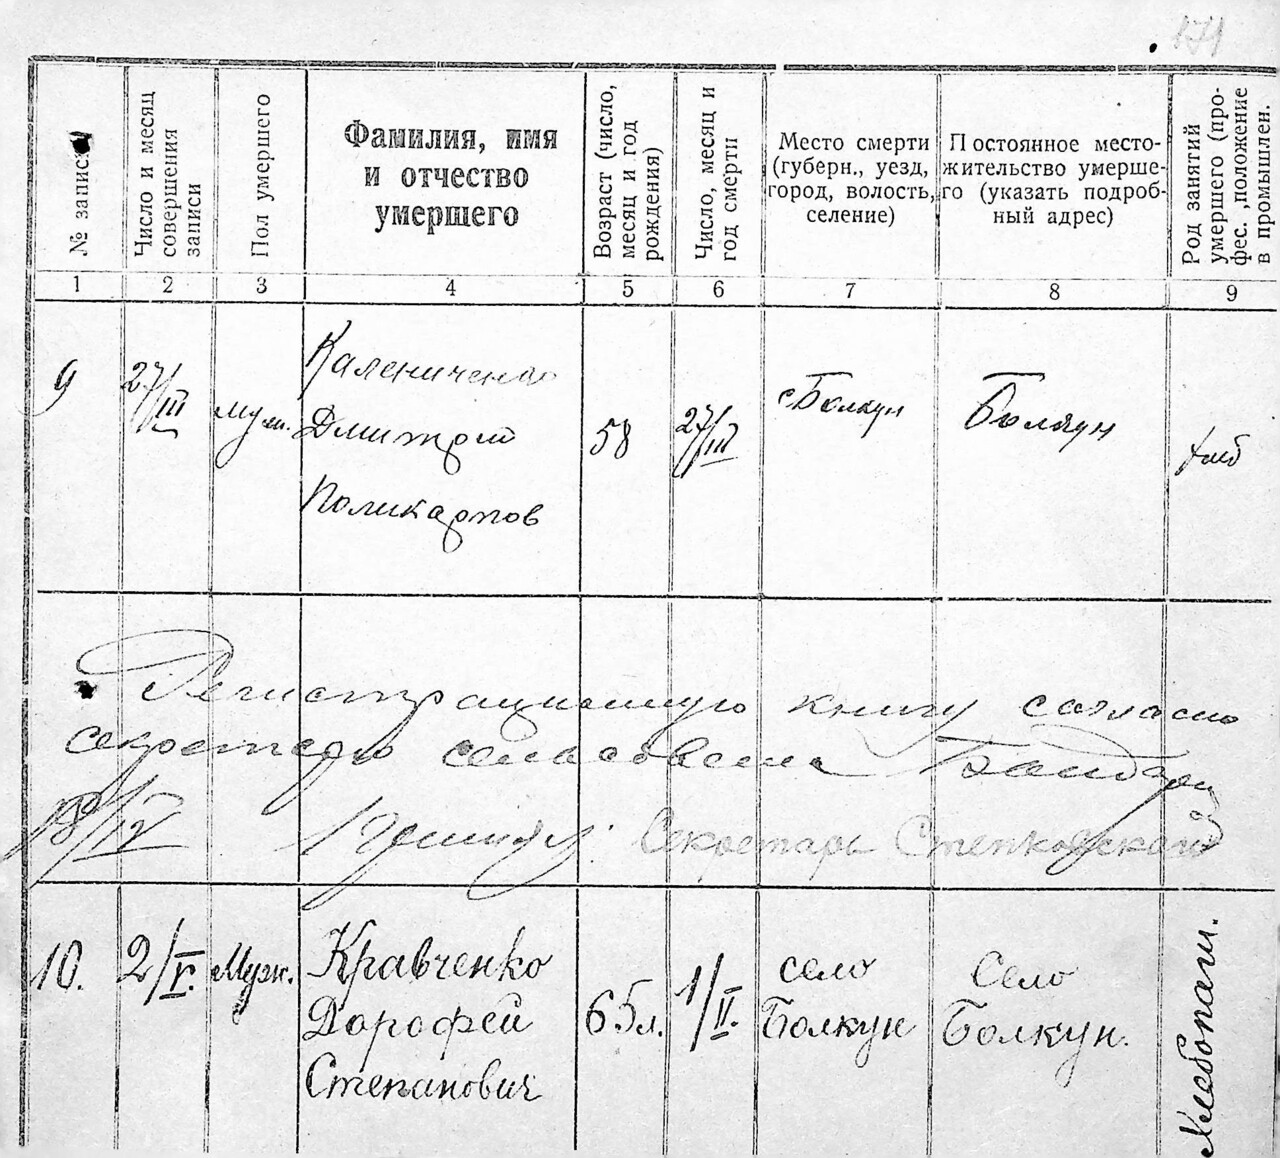 171
№ записи
Число и месяц
совершения
записи
Пол умершего
Фамилия, имя
и отчество
умершего
Возраст (число,
месяц и год
рождения)
Число, месяц и
год смерти
Место смерти
(губерн., уезд,
город, волость,
селение)
Постоянное место-
жительство умерше-
го (указать подроб-
ный адрес)
Род занятий
умершего (про-
фес., положение
в промышлен.
1 2 3 4 5 6 7 8 9
9
27/III
Муж.
Калениченко
Дмитрий
Поликарпов
58
27/III
с Болкун
Болкун
хлеб
Регистрационную книгу согласно
секретарю сельсовета
18/IV Принял: Секретарь Степковский
10.
2/V.
Муж.
Кравченко
Дорофей
Степанович
65 л.
1/II.
село
Болкун
Село
Болкун.
Хлебопаш.